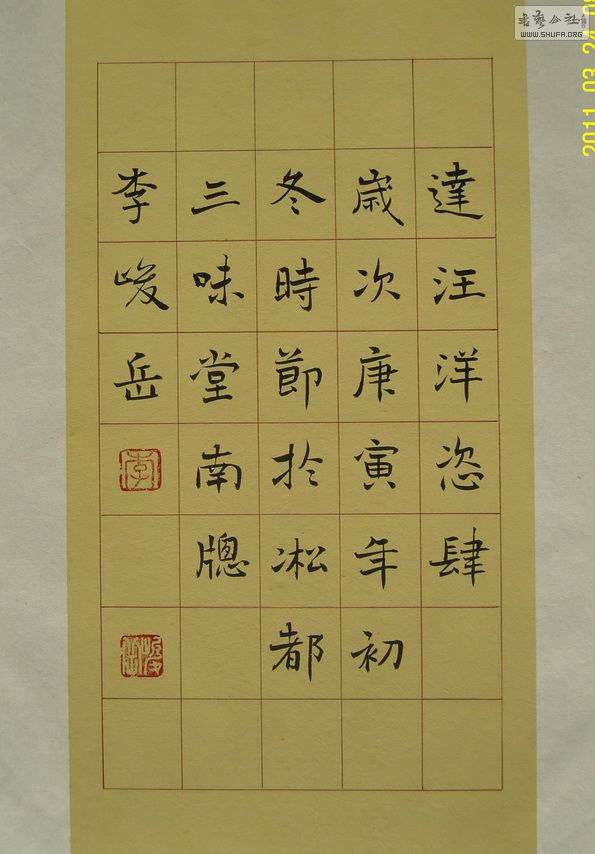 達汪洋恣肆
歲次庚寅年初
冬時節於凇都
三味堂南牕
李峻岳
李
峻岳
書藝公社
WWW.SHUFA.ORG